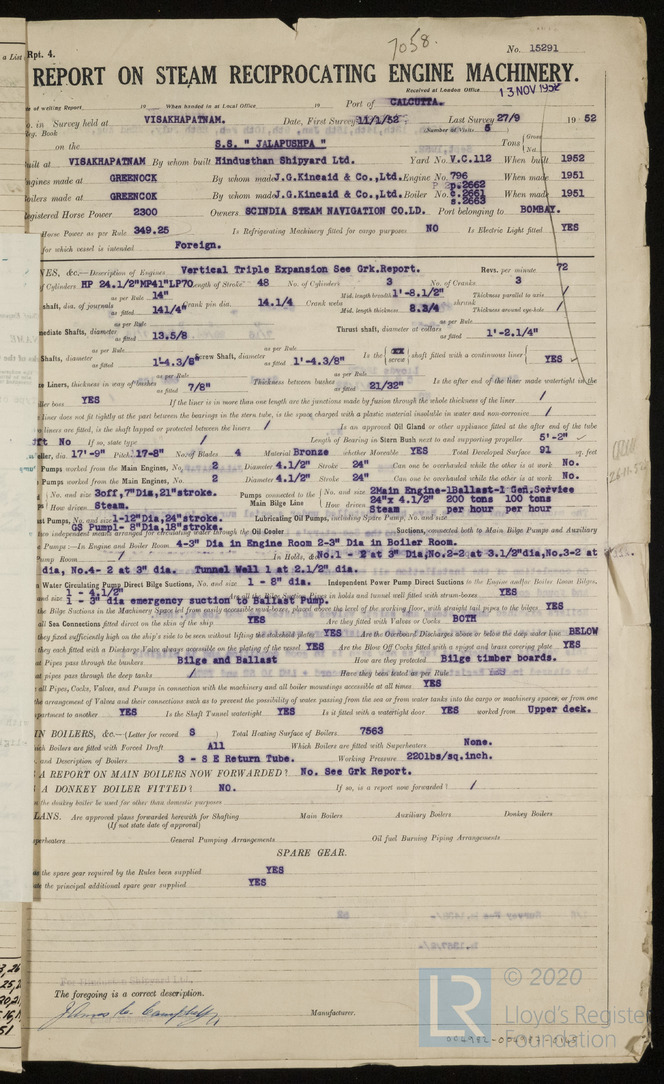 a List
Rpt. 4.
7058.
No. 15291
REPORT ON STEAM RECIPROCATING ENGINE MACHINERY.
Received at London Office 13 NOV 1952
of writing Report 19 When handed in at Local Office 19 Port of CALCUTTA.
in Survey held at VISAKHAPATNAM. Date, First Survey 11/1/52 Last Survey 27/9 1952
Reg. Book (Number of Visits 5
on the S.S. " JALAPUSHPA " Tons { Gross
Net
Built at VISAKHAPATNAM By whom built Hindusthan Shipyard Ltd. Yard No. V.C.112 When built 1952
Engines made at GREENOCK By whom made J.G.Kincaid & Co.,Ltd. Engine No. 796 When made 1951
p.2662
Boilers made at GREENCOK By whom made J.G.Kincaid & Co.,Ltd. Boiler No. c.2661 When made 1951
s.2663
Registered Horse Power 2300 Owners SCINDIA STEAM NAVIGATION CO.LD. Port belonging to BOMBAY.
Horse Power as per Rule 349.25 Is Refrigerating Machinery fitted for cargo purposes NO Is Electric Light fitted YES
for which vessel is intended Foreign.
NES, &c.—Description of Engines Vertical Triple Expansion See Grk.Report. Revs. per minute 72
of Cylinders HP 24.1/2"MP41"LP70 Length of Stroke 48 No. of Cylinders 3 No. of Cranks 3
shaft, dia. of journals as per Rule 14" as fitted 141/4" Crank pin dia. 14.1/4 Crank webs Mid. length breadth 1'-8.1/2" Thickness parallel to axis /
Mid. length thickness 8.3/4 shrunk Thickness around eye-hole /
mediate Shafts, diameter as per Rule as fitted 13.5/8 Thrust shaft, diameter at collars as per Rule as fitted 1'-2.1/4"
Shafts, diameter as per Rule as fitted 1'-4.3/8" Screw Shaft, diameter as per Rule as fitted 1'-4.3/8" Is the { screw } shaft fitted with a continuous liner { YES
Liners, thickness in way of bushes as per Rule as fitted 7/8" Thickness between bushes as per Rule as fitted 21/32" Is the after end of the liner made watertight in the
ller boss YES If the liner is in more than one length are the junctions made by fusion through the whole thickness of the liner /
liner does not fit tightly at the part between the bearings in the stern tube, is the space charged with a plastic material insoluble in water and non-corrosive /
liners are fitted, is the shaft lapped or protected between the liners / Is an approved Oil Gland or other appliance fitted at the after end of the tube
ft No If so, state type / Length of Bearing in Stern Bush next to and supporting propeller 5'-2"
eller, dia. 17'-9" Pitch 17-8" No. of Blades 4 Material Bronze whether Moveable YES Total Developed Surface 91 sq. feet
Pumps worked from the Main Engines, No. 2 Diameter 4.1/2" Stroke 24" Can one be overhauled while the other is at work No.
Pumps worked from the Main Engines, No. 2 Diameter 4.1/2" Stroke 24" Can one be overhauled while the other is at work No.
No. and size 3off,7"Dia,21"stroke. Pumps connected to the Main Bilge Line { No. and size 2Main Engine-1Ballast-1 Gen.Service
24"x 4.1/2" 200 tons 100 tons
How driven Steam. How driven Steam per hour per hour
ast Pumps, No. and size 1-12"Dia,24"stroke. Lubricating Oil Pumps, including Spare Pump, No. and size
GS Pump1- 8"Dia,18"stroke.
two independent means arranged for circulating water through the Oil Cooler Suctions, connected both to Main Bilge Pumps and Auxiliary
Pumps:—In Engine and Boiler Room 4-3" Dia in Engine Room 2-3" Dia in Boiler Room.
Pump Room / In Holds, &c. No.1 - 2 at 3" Dia,No.2-2 at 3.1/2"dia,No.3-2 at
dia, No.4-2 at 3" dia. Tunnel Well 1 at 2.1/2" dia.
Water Circulating Pump Direct Bilge Suctions, No. and size 1 - 8" dia. Independent Power Pump Direct Suctions to the Engine and/or Boiler Room Bilges,
and size 1 - 4.1/2" Are all the Bilge Suction Pipes in holds and tunnel well fitted with strum-boxes YES
1 - 3" dia emergency suction to Ballast Pump.
the Bilge Suctions in the Machinery Space led from easily accessible mud-boxes, placed above the level of the working floor, with straight tail pipes to the bilges YES
all Sea Connections fitted direct on the skin of the ship YES Are they fitted with Valves or Cocks BOTH
they fixed sufficiently high on the ship's side to be seen without lifting the stokehold plates YES Are the Overboard Discharges above or below the deep water line BELOW
they each fitted with a Discharge Valve always accessible on the plating of the vessel YES Are the Blow Off Cocks fitted with a spigot and brass covering plate YES
at Pipes pass through the bunkers Bilge and Ballast How are they protected Bilge timber boards.
at pipes pass through the deep tanks / Have they been tested as per Rule
all Pipes, Cocks, Valves, and Pumps in connection with the machinery and all boiler mountings accessible at all times YES
the arrangement of Valves and their connections such as to prevent the possibility of water passing from the sea or from water tanks into the cargo or machinery spaces, or from one
partment to another YES Is the Shaft Tunnel watertight YES Is it fitted with a watertight door YES worked from Upper deck.
IN BOILERS, &c.—(Letter for record S ) Total Heating Surface of Boilers 7563
hich Boilers are fitted with Forced Draft All Which Boilers are fitted with Superheaters None.
and Description of Boilers 3 - S E Return Tube. Working Pressure 220lbs/sq.inch.
A REPORT ON MAIN BOILERS NOW FORWARDED? No. See Grk Report.
A DONKEY BOILER FITTED? NO. If so, is a report now forwarded? /
the donkey boiler be used for other than domestic purposes
LANS. Are approved plans forwarded herewith for Shafting Main Boilers Auxiliary Boilers Donkey Boilers
(If not state date of approval)
perheaters General Pumping Arrangements Oil fuel Burning Piping Arrangements
SPARE GEAR.
the spare gear required by the Rules been supplied YES
ate the principal additional spare gear supplied YES
For Hindusthan Shipyard Ltd.
The foregoing is a correct description.
James C. Campbell Manufacturer.
LR
© 2020
Lloyd's Register
Foundation